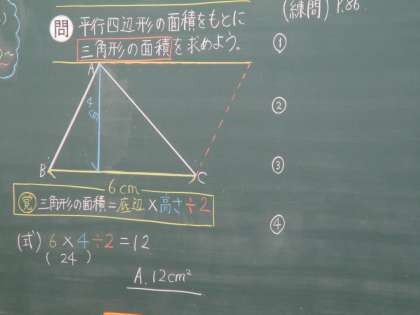 問 平行四辺形の面積をもとに
三角形の面積を求めよう。
(練問) P.86
①
②
③
④
A
4cm
B
C
6cm
覚 三角形の面積=底辺×高さ÷2
(式) 6×4÷2=12
( 24 )
A. 12cm²